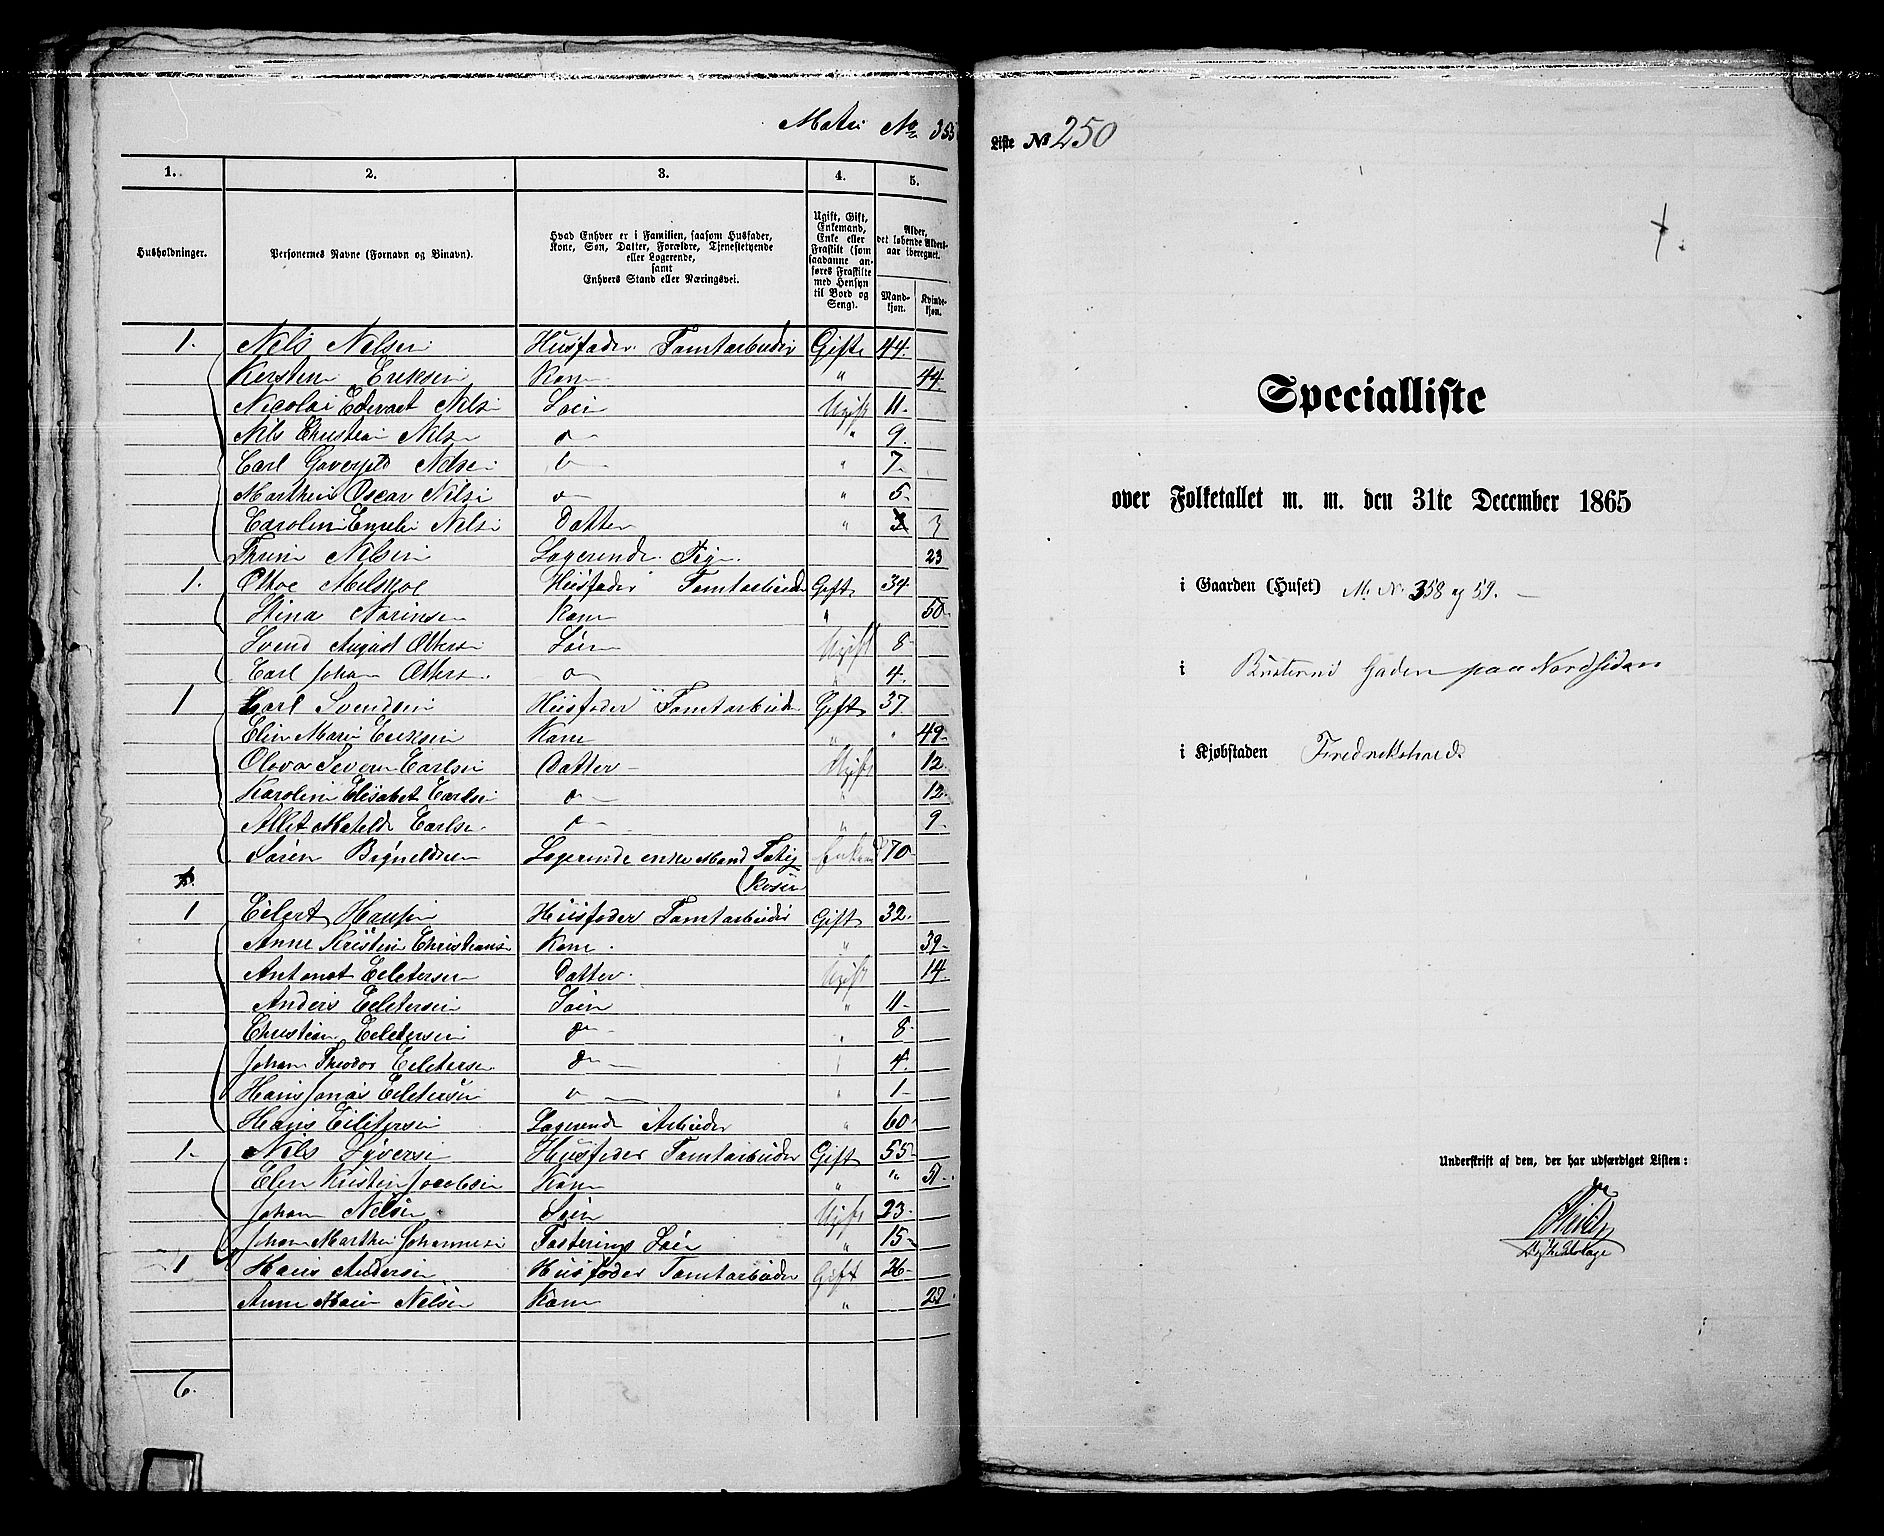 Matr No 355
1. 2. 3. 4. 5.
Husholdninger. Personernes Navne (Fornavn og Binavn). Hvad Enhver er i Familien, saasom Husfader, Kone, Søn, Datter, Forældre, Tjenestetyende eller Logerende, samt Enhvers Stand eller Næringsvei. Ugift, Gift, Enkemand, Enke eller Fraskilt (som saadanne anføres Fraskilte med Hensyn til Bord og Seng). Alder, det løbende Alders-aar iberegnet.
Mand-kjøn. Kvinde-kjøn.
1. Nils Nelsen Husfader Tomtarbeider Gift 44.
Kerstine Eriksen Kone " 44.
Nicolai Edevart Nelsen Søn Ugift 11.
Nils Christian Nelsen do " 9.
Carl Nelsen do " 7.
Marthin Oscar Nelsen do " 5.
Caroline Emelie Nelsen Datter " 3
Nelsen Logerende Pige 23
1. Ottoe Husfader Tomtarbeider Gift 34.
Stina Kone " 50.
Svend August Ottersen Søn Ugift 8.
Carl Johan Ottersen do " 4.
1 Carl Svendsen Husfader Tomtarbeider Gift 37.
Elen Marie Eriksen Kone " " 49.
Olova Carlsen Datter Ugift 12.
Karoline Elisabet Carlsen do " 12.
Matelde Carlsen do " 9.
Søren Logerende enke Mand 70.
1 Eilert Hansen Husfader Tomtarbeider Gift 32.
Anne Kristine Christians Kone " 39.
Antonet Eiletersen Datter Ugift 14.
Anders Eiletersen Søn " 11.
Christian Eiletersen do " 8.
Johan Theodor Eiletersen do " 4.
Hans Jonas Eiletersen do " 1.
Hans Eiletersen Logerende Arbeider " 60.
1. Nils Syversen Husfader Tomtarbeider Gift 55.
Elen Kristine Jacobsen Kone " " 51.
Johan Nelsen Søn Ugift 23.
Johan Marthin Johannesen Fosterings Søn " 15.
1 Hans Andersen Husfader Tomtarbeider Gift 26.
Anne Marie Nelsen Kone " 27.
6.
Liste No 250
Specialliste
over Folketallet m. m. den 31te December 1865
i Gaarden (Huset) M. N. 358 og 59.
i Gaden paa Nordsiden
i Kjøbstaden Fredrikshald
Underskrift af den, der har udfærdiget Listen: